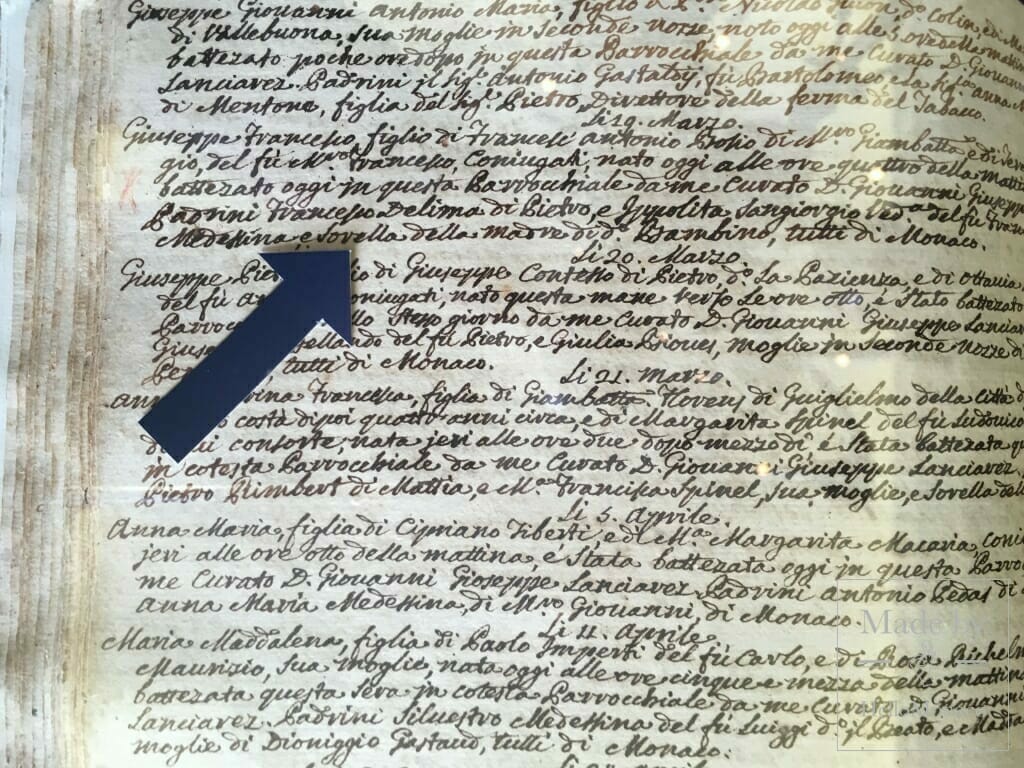 Giuseppe Giovanni Antonio Maria, figlio di Nicolao d.º Colin, e di
di Vallebuona, sua moglie in seconde nozze, nato oggi alle 5. ore della mattina
battezato poche ore dopo in questa Parrocchiale da me Curato D. Giovanni
Lanciarez. Padrini il Sig.r Antonio Gastaldy, fù Bartolomeo, e la Sig.ra Anna
di Mentone, figlia del Sig.r Pietro, Direttore della ferma del Tabaco.
Li 19. Marzo.
Giuseppe Francesco, figlio di Francesc' Antonio Bosio di M.ro Giambatta e di
gio, del fù M.ro Francesco, Coniugati, nato oggi alle ore quattro della
battezato oggi in questa Parrocchiale da me Curato D. Giovanni Giuseppe
Padrini Francesco Delima di Pietro, e Ippolita Sangiorgio Ved.a del fù
Medessina, e Sorella della madre di d.º Bambino, tutti di Monaco.
Li 20. Marzo.
Giuseppe di Giuseppe Contesso di Pietro, d.º La Pazienza, e di Ottavia,
del fù coniugati, nato questa mane verso le ore otto, è stato battezato
stesso giorno da me Curato D. Giovanni Giuseppe
del fù Pietro, e Giulia moglie in seconde nozze di
tutti di Monaco.
Li 21. Marzo.
Francesca, figlia di Giambatta di Guiglielmo della Città
costà dipoi quattro anni circa, e di Margarita Spinel del fù Ludovico
consorte, nata jeri alle ore due dopo mezzo dì è stata battezata
in cotesta Parrocchiale da me Curato D. Giovanni Giuseppe Lanciarez.
Pietro Rimbert di Mattia, e M.a Francisca Spinel, sua moglie, e Sorella
Li 5. Aprile.
Anna Maria, figlia di Cipriano Tiberti, e di M.a Margarita Macaria,
jeri alle ore otto della mattina, è stata battezata oggi in questa
me Curato D. Giovanni Gioseppe Lanciarez. Padrini Antonio Pedas di
Anna Maria Medessina, di M.ro Giovanni, di Monaco.
Li 11. Aprile.
Maria Maddalena, figlia di Paolo Imperti del fù Carlo, e di Rosa
Maurizio, sua moglie, nata oggi alle ore cinque e mezza della
battezata questa sera in cotesta Parrocchiale da me Curato D. Giovanni
Lanciarez. Padrini Silvestro Medessina del fù Luiggi d.º il Beato, e
moglie di Dioniggio Gastaud, tutti di Monaco.
Made in